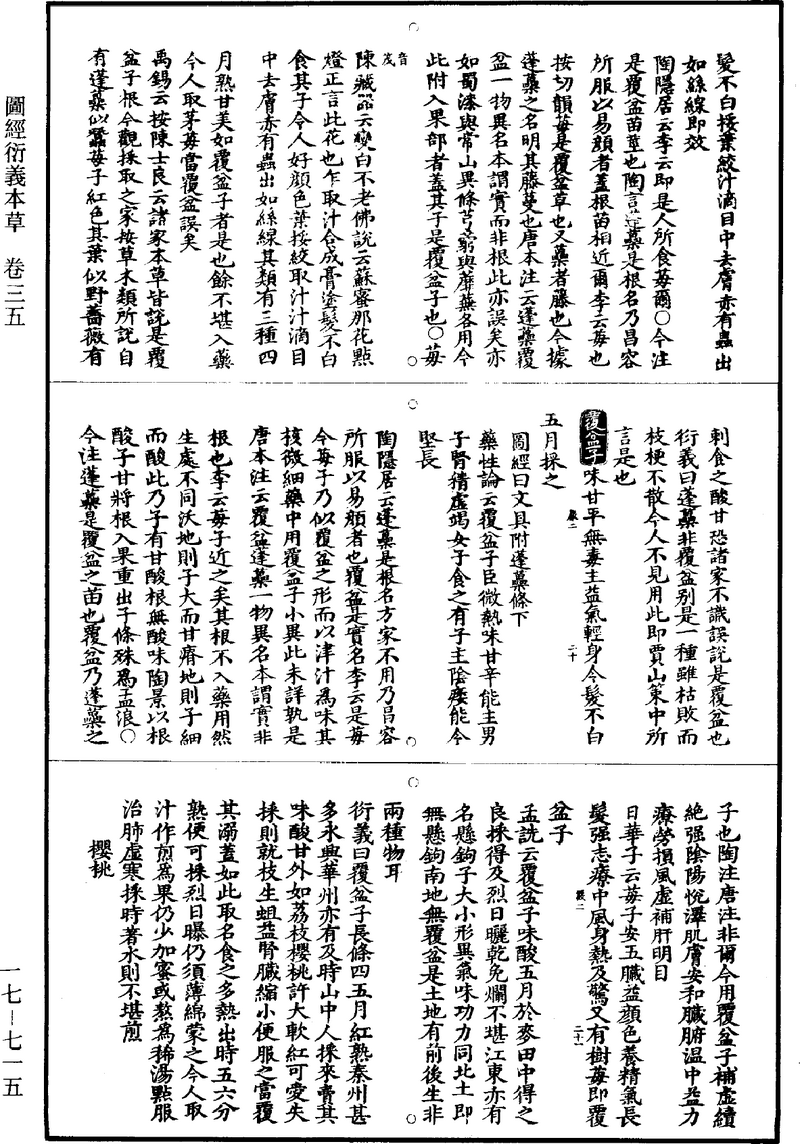 圖經衍義本草　卷三五
髮不白挼葉絞汁滴目中去膚赤有蟲出
如絲線即效
陶隱居云李云即是人所食莓爾○今注
是覆盆苗莖也陶言蓬虆是根名乃昌容
所服以易顏者蓋根苗相近爾李云莓也
按切韻莓是覆盆草也又虆者藤也今據
蓬虆之名明其藤蔓也唐本注云蓬虆覆
盆一物異名本謂實而非根此亦誤矣亦
如蜀漆與常山異條芎藭與蘼蕪各用今
此附入果部者蓋其子是覆盆子也○莓
音茂
陳藏器云變白不老佛說云蘇蜜那花點
燈正言此花也乍取汁合成膏塗髮不白
食其子令人好顏色葉挼絞取汁汁滴目
中去膚赤有蟲出如絲線其類有三種四
月熟甘美如覆盆子者是也餘不堪入藥
今人取茅莓當覆盆誤矣
禹錫云按陳士良云諸家本草皆說是覆
盆子根今觀採取之家按草木類所說自
有蓬虆似蠶莓子紅色其葉似野薔薇有
刺食之酸甘恐諸家不識誤說是覆盆也
衍義曰蓬虆非覆盆別是一種雖枯敗而
枝梗不散今人不見用此即賈山策中所
言是也
覆盆子味甘平無毒主益氣輕身令髮不白
五月採之
圖經曰文具附蓬虆條下
藥性論云覆盆子臣微熱味甘辛能主男
子腎精虛竭女子食之有子主陰痿能令
堅長
陶隱居云蓬虆是根名方家不用乃昌容
所服以易顏者也覆盆是實名李云是莓
今莓子乃似覆盆之形而以津汁為味其
核微細藥中用覆盆子小異此未詳孰是
唐本注云覆盆蓬虆一物異名本謂實非
根也李云莓子近之矣其根不入藥用然
生處不同沃地則子大而甘瘠地則子細
而酸此乃子有甘酸根無酸味陶景以根
酸子甘將根入果重出子條殊為孟浪○
今注蓬虆是覆盆之苗也覆盆乃蓬虆之
子也陶注唐注非爾今用覆盆子補虛續
絕強陰陽悅澤肌膚安和臟腑溫中益力
療勞損風虛補肝明目
日華子云莓子安五臟益顏色養精氣長
髮強志療中風身熱及驚又有樹莓即覆
盆子
孟詵云覆盆子味酸五月於麥田中得之
良採得及烈日曬乾免爛不堪江東亦有
名懸鉤子大小形異氣味功力同北土即
無懸鉤南地無覆盆是土地有前後生非
兩種物耳
衍義曰覆盆子長條四五月紅熟秦州甚
多永興華州亦有及時山中人採來賣其
味酸甘外如荔枝櫻桃許大軟紅可愛失
採則就枝生蛆益腎臟縮小便服之當覆
其溺蓋如此取名食之多熱出時五六分
熟便可採烈日曝仍須薄綿蒙之今人取
汁作煎為果仍少加蜜或熬為稀湯點服
治肺虛寒採時著水則不堪煎
櫻桃
一七－七一五